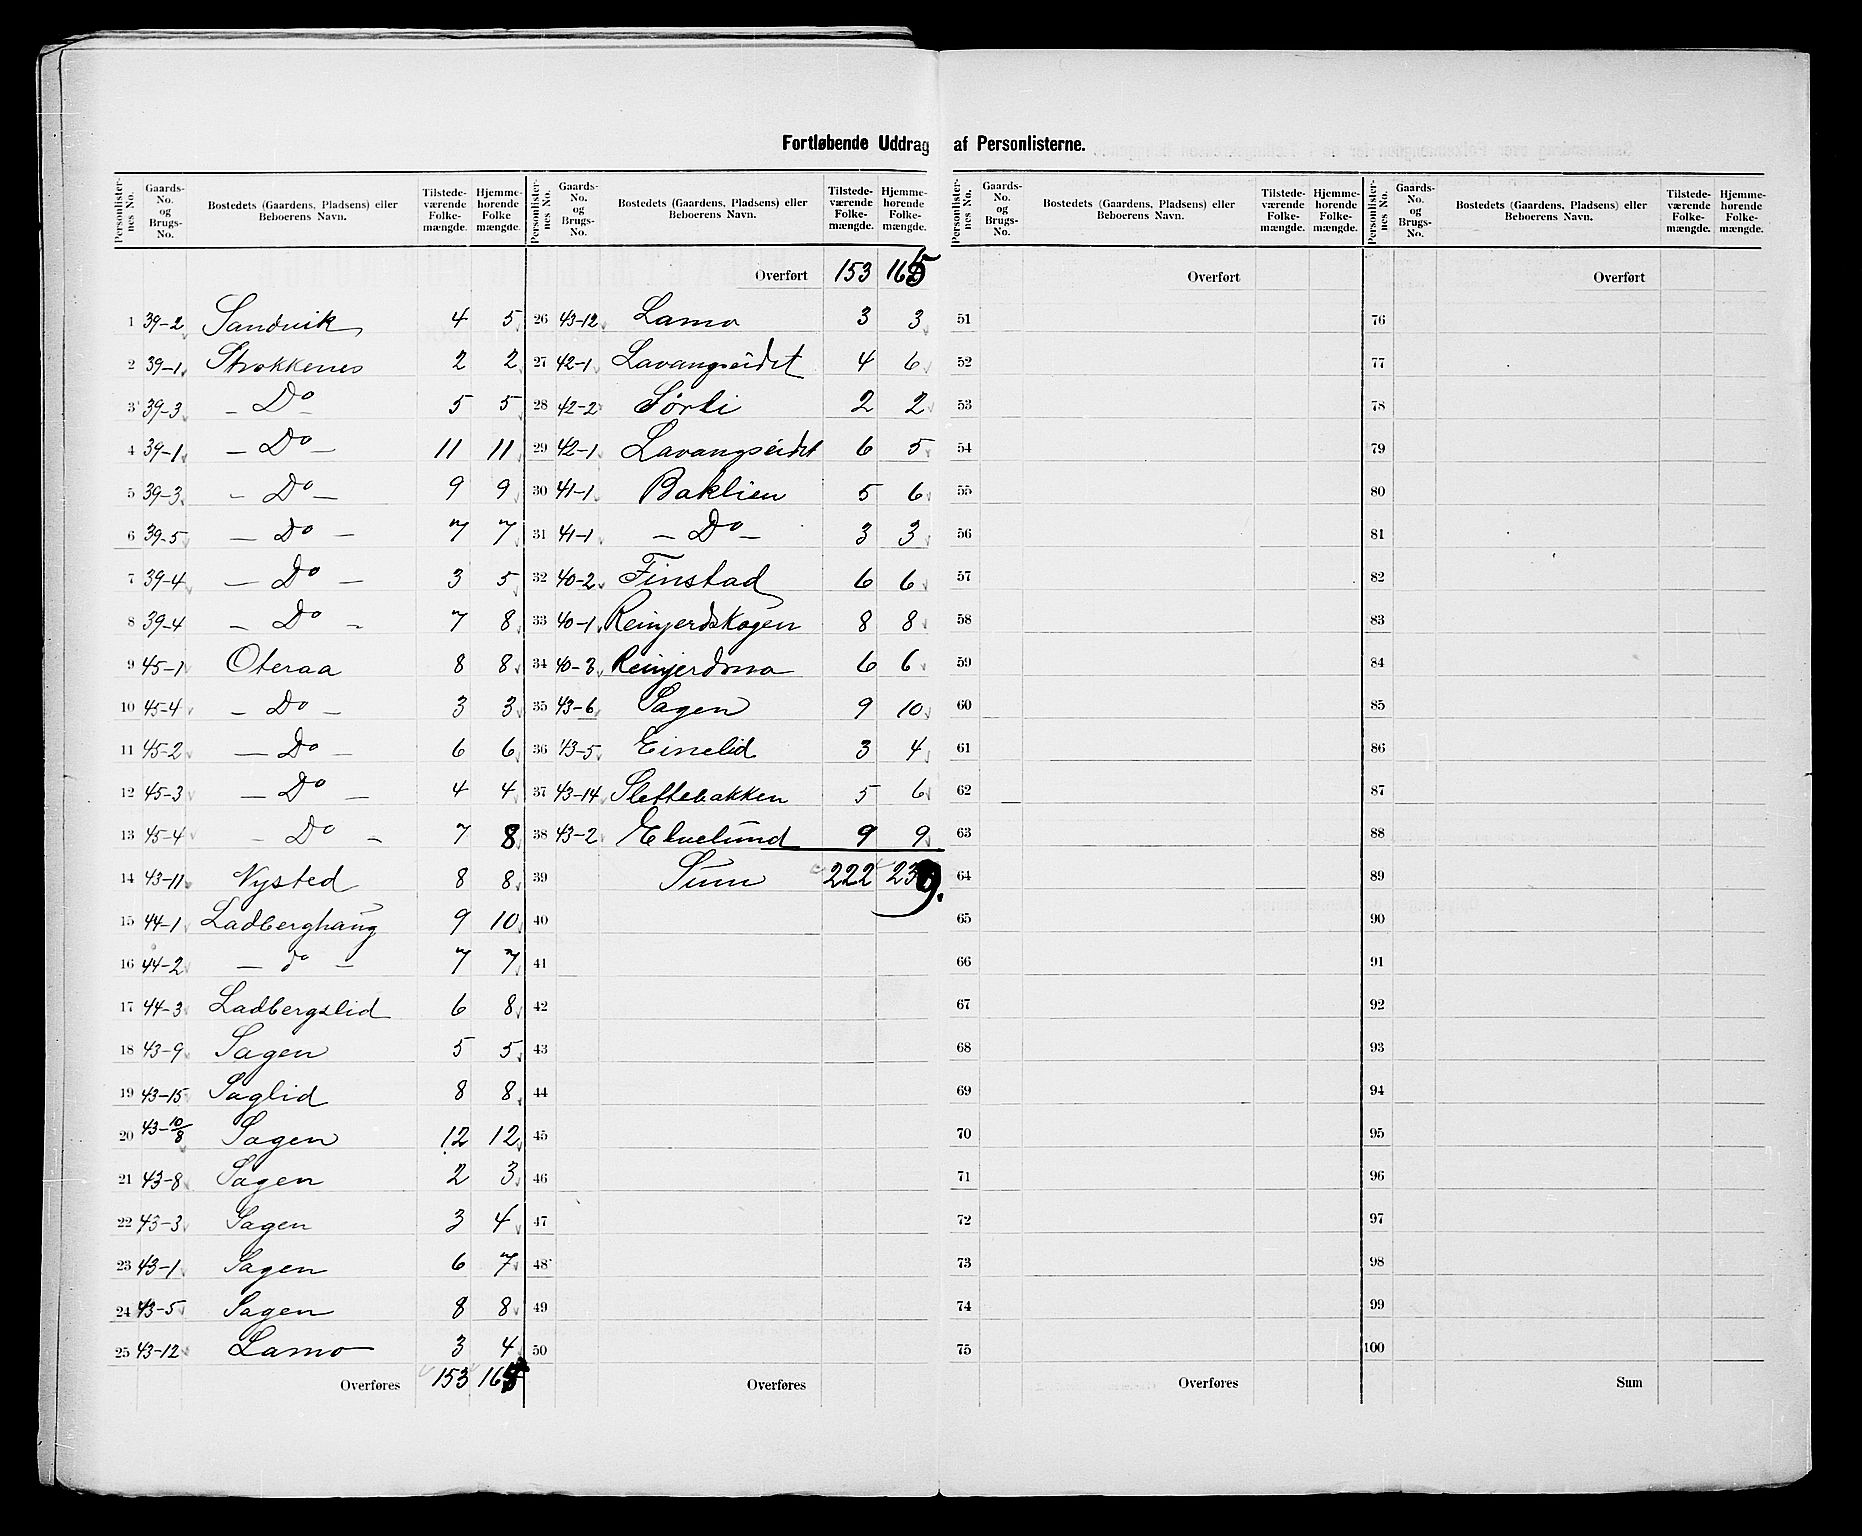 Fortløbende Uddrag af Personlisterne.
Personlisternes No. Gaards-No. og Brugs-No. Bostedets (Gaardens, Pladsens) eller Beboerens Navn. Tilstedeværende Folkemængde. Hjemmehørende Folkemængde.
1 39-2 Sandvik 4 5
2 39-1 Strokkenes 2 2
3 39-3 - Do - 5 5
4 39-1 - Do - 11 11
5 39-3 - Do - 9 9
6 39-5 - Do - 7 7
7 39-4 - Do - 3 5
8 39-4 - Do - 7 8
9 45-1 Oteraa 8 8
10 45-4 - Do - 3 3
11 45-2 - Do - 6 6
12 45-3 - Do - 4 4
13 45-4 - Do - 7 8
14 43-11 Nysted 8 8
15 44-1 Ladberghaug 9 10
16 44-2 - do - 7 7
17 44-3 Ladbergslid 6 8
18 43-9 Sagen 5 5
19 43-15 Saglid 8 8
20 43-10/8 Sagen 12 12
21 43-8 Sagen 2 3
22 43-3 Sagen 3 4
23 43-1 Sagen 6 7
24 43-5 Sagen 8 8
25 43-12 Lamo 3 4
Overføres 153 165
Personlisternes No. Gaards-No. og Brugs-No. Bostedets (Gaardens, Pladsens) eller Beboerens Navn. Tilstedeværende Folkemængde. Hjemmehørende Folkemængde.
Overført 153 165
26 43-12 Lamo 3 3
27 42-1 Lavangseidet 4 6
28 42-2 Sørli 2 2
29 42-1 Lavangseidet 6 5
30 41-1 Baklien 5 6
31 41-1 - Do - 3 3
32 40-2 Finstad 6 6
33 40-1 Reinjerdskogen 8 8
34 40-3 Reinjerdmo 6 6
35 43-6 Sagen 9 10
36 43-5 Einelid 3 4
37 43-14 Slettebakken 5 6
38 43-2 Elvelund 9 9
39 Sum 222 239.
40
41
42
43
44
45
46
47
48
49
50
Overføres
Personlisternes No. Gaards-No. og Brugs-No. Bostedets (Gaardens, Pladsens) eller Beboerens Navn. Tilstedeværende Folkemængde. Hjemmehørende Folkemængde.
Overført
51
52
53
54
55
56
57
58
59
60
61
62
63
64
65
66
67
68
69
70
71
72
73
74
75
Overføres
Personlisternes No. Gaards-No. og Brugs-No. Bostedets (Gaardens, Pladsens) eller Beboerens Navn. Tilstedeværende Folkemængde. Hjemmehørende Folkemængde.
Overført
76
77
78
79
80
81
82
83
84
85
86
87
88
89
90
91
92
93
94
95
96
97
98
99
100
Sum